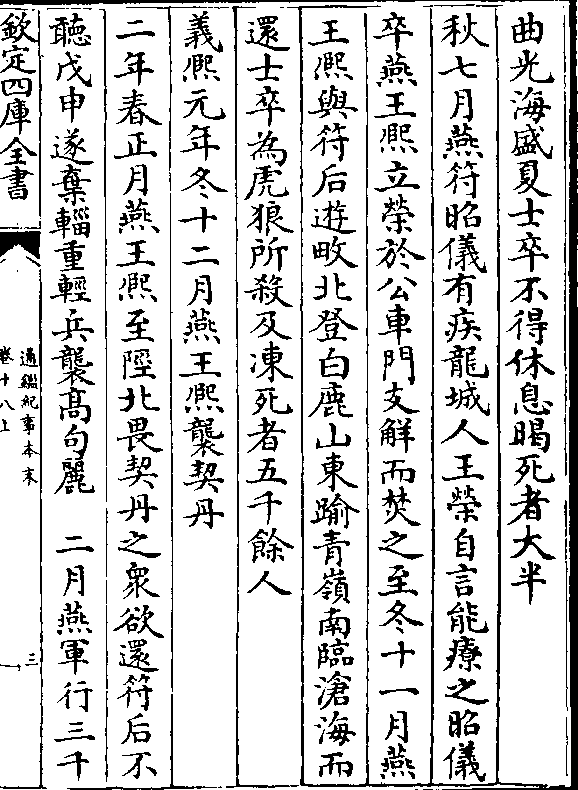 曲光海盛夏士卒不得休息暍死者大半
秋七月燕符昭儀有疾龍城人王榮自言能療之昭儀
卒燕王熙立榮於公車門支解而焚之至冬十一月燕
王熙與符后遊畋北登白鹿山東踰青嶺南臨滄海而
還士卒為虎狼所殺及凍死者五千餘人
義熙元年冬十二月燕王熙襲契丹
二年春正月燕王熙至陘北畏契丹之衆欲還符后不
聽戊申遂棄輜重輕兵襲髙句麗　二月燕軍行三千
欽定四庫全書
通鑑紀事本末
卷十八上
三